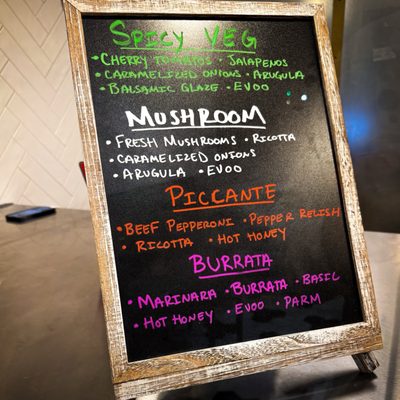 SPICY VEG
• CHERRY TOMATOS • JALAPENOS
• CARAMELIZED ONIONS • ARUGULA
• BALSAMIC GLAZE • EVOO
MUSHROOM
• FRESH MUSHROOMS • RICOTTA
• CARAMELIZED ONIONS
• ARUGULA • EVOO
PICCANTE
• BEEF PEPPERONI • PEPPER RELISH
• RICOTTA • HOT HONEY
BURRATA
• MARINARA • BURRATA • BASIL
• HOT HONEY • EVOO • PARM